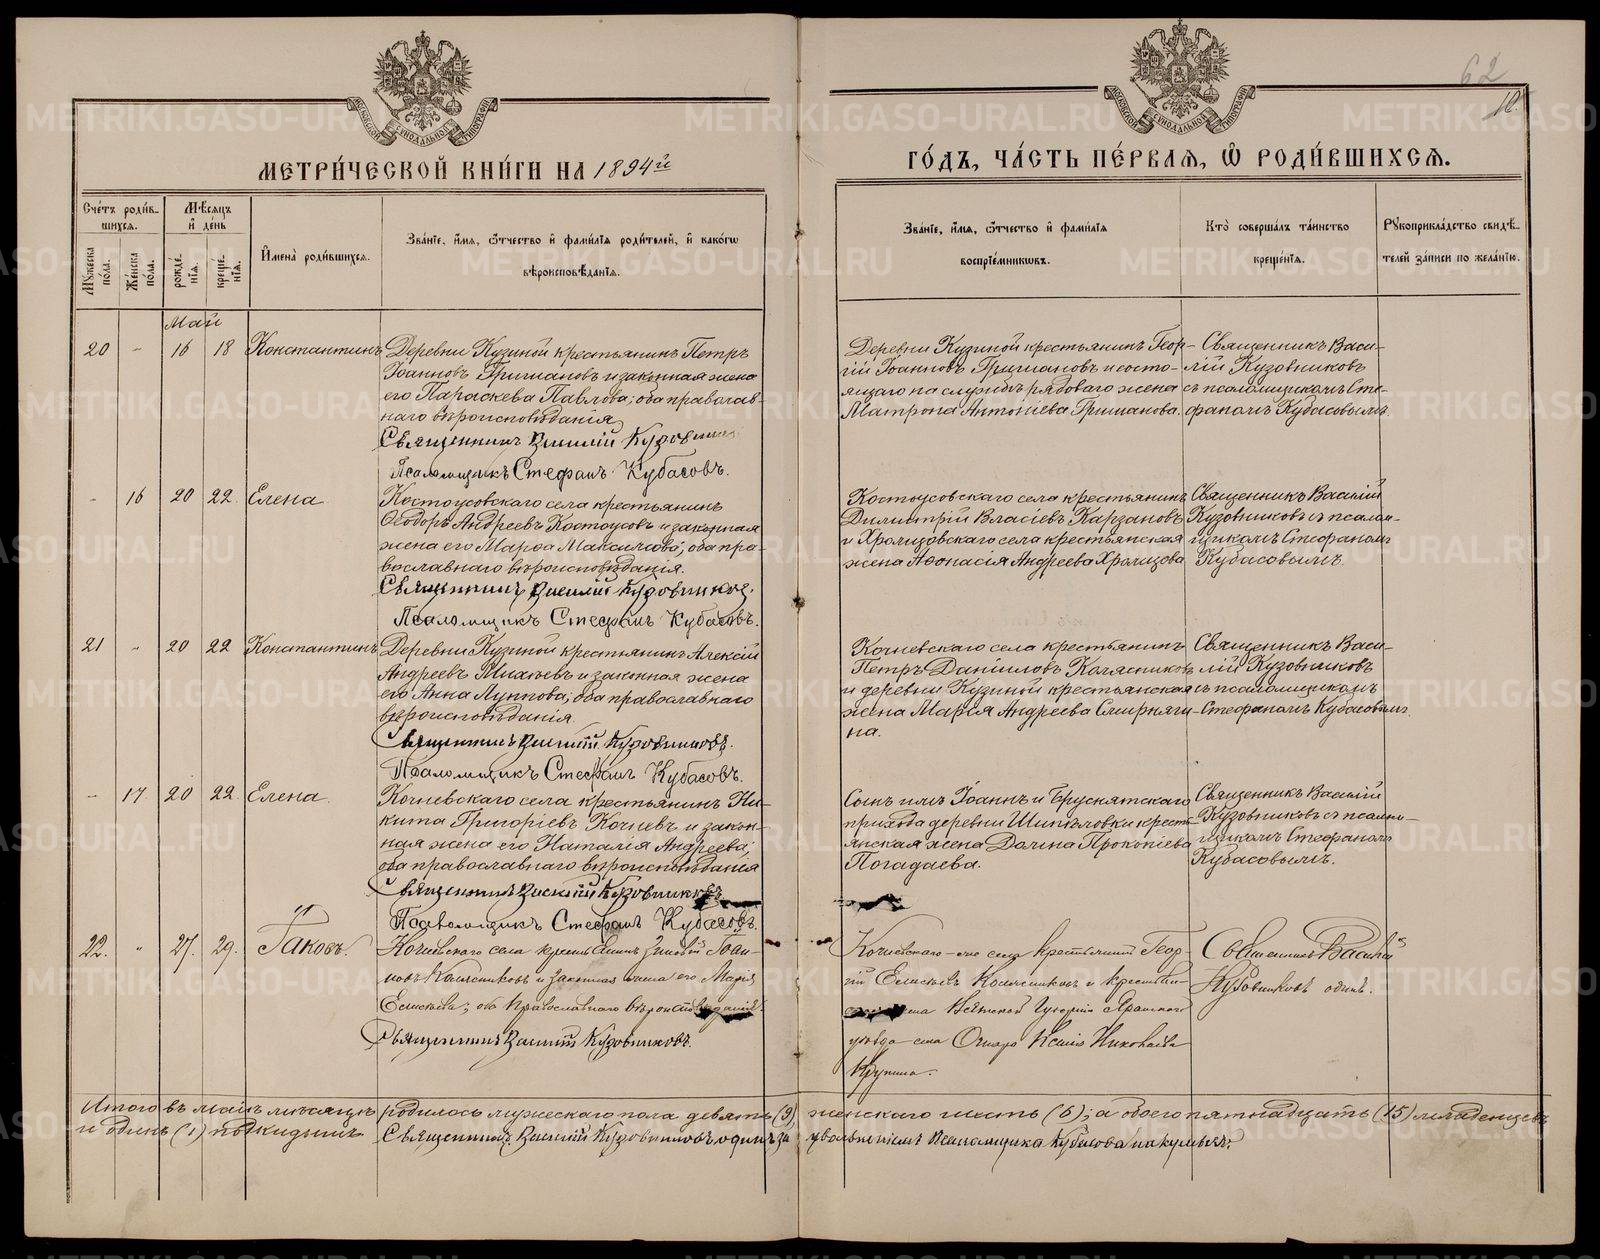 62
10.
МЕТРИ́ЧЕСКОЙ КНИ́ГИ НА 1894й
ГО́ДЪ, ЧА́СТЬ ПЕ́РВАЯ, Ѽ РОДИ́ВШИХСЯ.
Сче́тъ роди́в-
шихся.
Мѣ́сяцъ
и҆ де́нь
И҆мена̀ роди́вшихся.
Зва́нїе, и҆́мя, ѻ҆́тчество и҆ фами́лїя роди́телей, и҆ како́гѡ
вѣроисповѣ́данїя.
Зва́нїе, и҆́мя, ѻ҆́тчество и҆ фами́лїя
воспрїе́мникѡвъ.
Кто̀ соверша́лъ та́инство
креще́нїя.
Рꙋкоприкла́дство свидѣ́-
телей за́писи по жела́нїю.
Мꙋ́жеска
по́ла.
Же́нска
по́ла.
рожде́-
нїя.
креще́-
нїя.
Май
20 - 16 18 Константинъ
Деревни Кузиной крестьянинъ Петръ
Іоанновъ и законная жена
его Параскева Павлова; оба православ-
наго вѣроисповѣданія
Священникъ Василій Кузовников
Псаломщикъ Стефанъ Кубасовъ.
Деревни Кузиной крестьянинъ Геор-
гій Іоанновъ и состо-
ящаго на службѣ рядоваго жена
Матрона Антоніева
Священникъ Васи-
лій Кузовниковъ
съ псаломщикомъ Сте-
фаномъ Кубасовымъ.
- 16 20 22 Елена
Костоусовскаго села крестьянинъ
Ѳеодоръ Андреевъ Костоусовъ и законная
жена его Марѳа Максимова; оба пра-
вославнаго вѣроисповѣданія.
Священникъ Василій Кузовниковъ.
Псаломщикъ Стефанъ Кубасовъ.
Костоусовскаго села крестьянинъ
Димитрій Власіевъ Карзановъ
и Хромцовскаго села крестьянская
жена Аѳанасія Андреева Хромцова
Священникъ Василій
Кузовниковъ съ псалом-
щикомъ Стефаномъ
Кубасовымъ.
21 - 20 22 Константинъ
Деревни Кузиной крестьянинъ Алексій
Андреевъ и законная жена
его Анна Луппова; оба православнаго
вѣроисповѣданія.
Священникъ Василій Кузовниковъ.
Псаломщикъ Стефанъ Кубасовъ.
Кочневскаго села крестьянинъ
Петръ Даніиловъ Колясниковъ
и деревни Кузиной крестьянская
жена Марія Андреева Смирняги-
на.
Священникъ Васи-
лій Кузовниковъ
съ псаломщикомъ
Стефаномъ Кубасовымъ.
- 17 20 22 Елена.
Кочневскаго села крестьянинъ Ни-
кита Григоріевъ Кочневъ и закон-
ная жена его Наталія Андреева;
оба православнаго вѣроисповѣданія
Священникъ Василій Кузовниковъ
Псаломщикъ Стефанъ Кубасовъ.
Сынъ имъ Іоаннъ и Бруснятскаго
прихода деревни Шипѣловки кресть-
янская жена Домна Прокопіева
Погадаева.
Священникъ Василій
Кузовниковъ съ псалом-
щикомъ Стефаномъ
Кубасовымъ.
22. " 27. 29. Іаковъ.
Кочневскаго села крестьянинъ Зиновій Іоан-
новъ Колясниковъ и законная жена его Марія
Елисѣева; оба Православнаго вѣроисповѣданія.
Священникъ Василій Кузовниковъ.
Кочневскаго-же села крестьянинъ Геор-
гій Елисѣевъ Колясниковъ и крестьян-
жена Вятской Губерніи Яранскаго
уѣзда села Ксенія Николаева
Крупина.
Священникъ Василій
Кузовниковъ одинъ.
Итого въ маѣ мѣсяцѣ родилось мужескаго пола девять (9), женскаго шесть (6); а обоего пятнадцать (15) младенцевъ
и одинъ (1) подкидышъ. Священникъ Василій Кузовниковъ один за увольненіемъ Псаломщика Кубасова